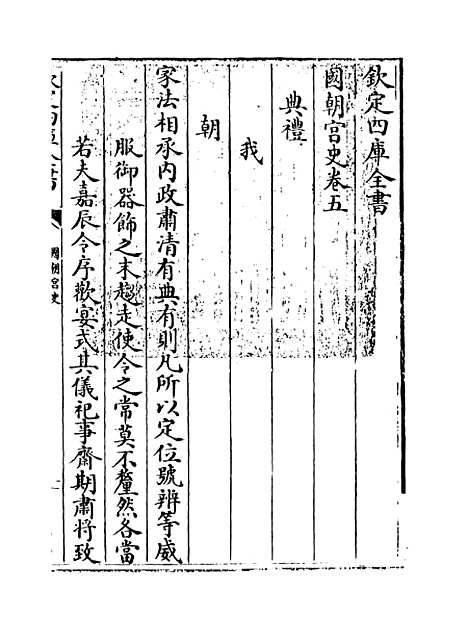 欽定四庫全書
國朝宮史卷五
典禮
我
朝
家法相承内政肅清有典有則凡所以定位號辨等威
服御器飾之末趨走使令之常莫不釐然各當
若夫嘉辰令序歡宴式其儀祀事齋期肅將致
國朝宮史